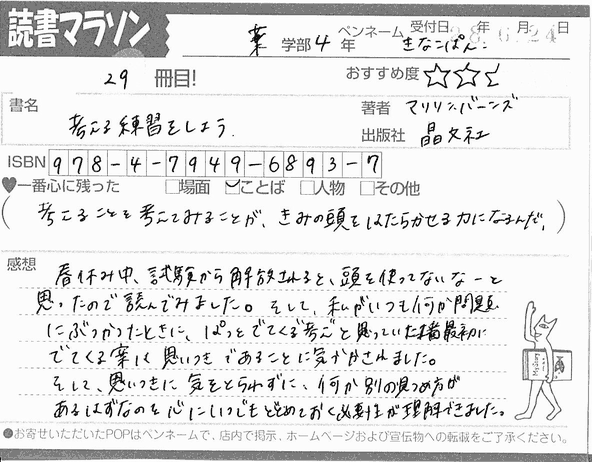 読書マラソン
薬 学部 4 年
ペンネーム きなこぱん
受付日 28年 6月 24日
29 冊目!
おすすめ度 ☆☆
書名 考える練習をしよう
著者 マリリン・バーンズ
出版社 晶文社
ISBN 978-4-7949-6893-7
♥一番心に残った □場面 □ことば □人物 □その他
(考えることを考えてみることが、きみの頭をはたらかせる力になるんだ。)
感想
春休み中、試験から解放されると、頭を使ってないなーと
思ったので読んでみました。そして、私がいつも何か問題
にぶつかったときに、ぱっとでてくる考えと思っていた最初に
でてくる案は思いつきであることに気づかされました。
そして、思いつきに気をとられずに、何か別の見つめ方が
あるはずなのを心にいつでもとどめておく必要性が理解できました。
●お寄せいただいたPOPはペンネームで、店内で掲示、ホームページおよび宣伝物への転載をご了承ください。